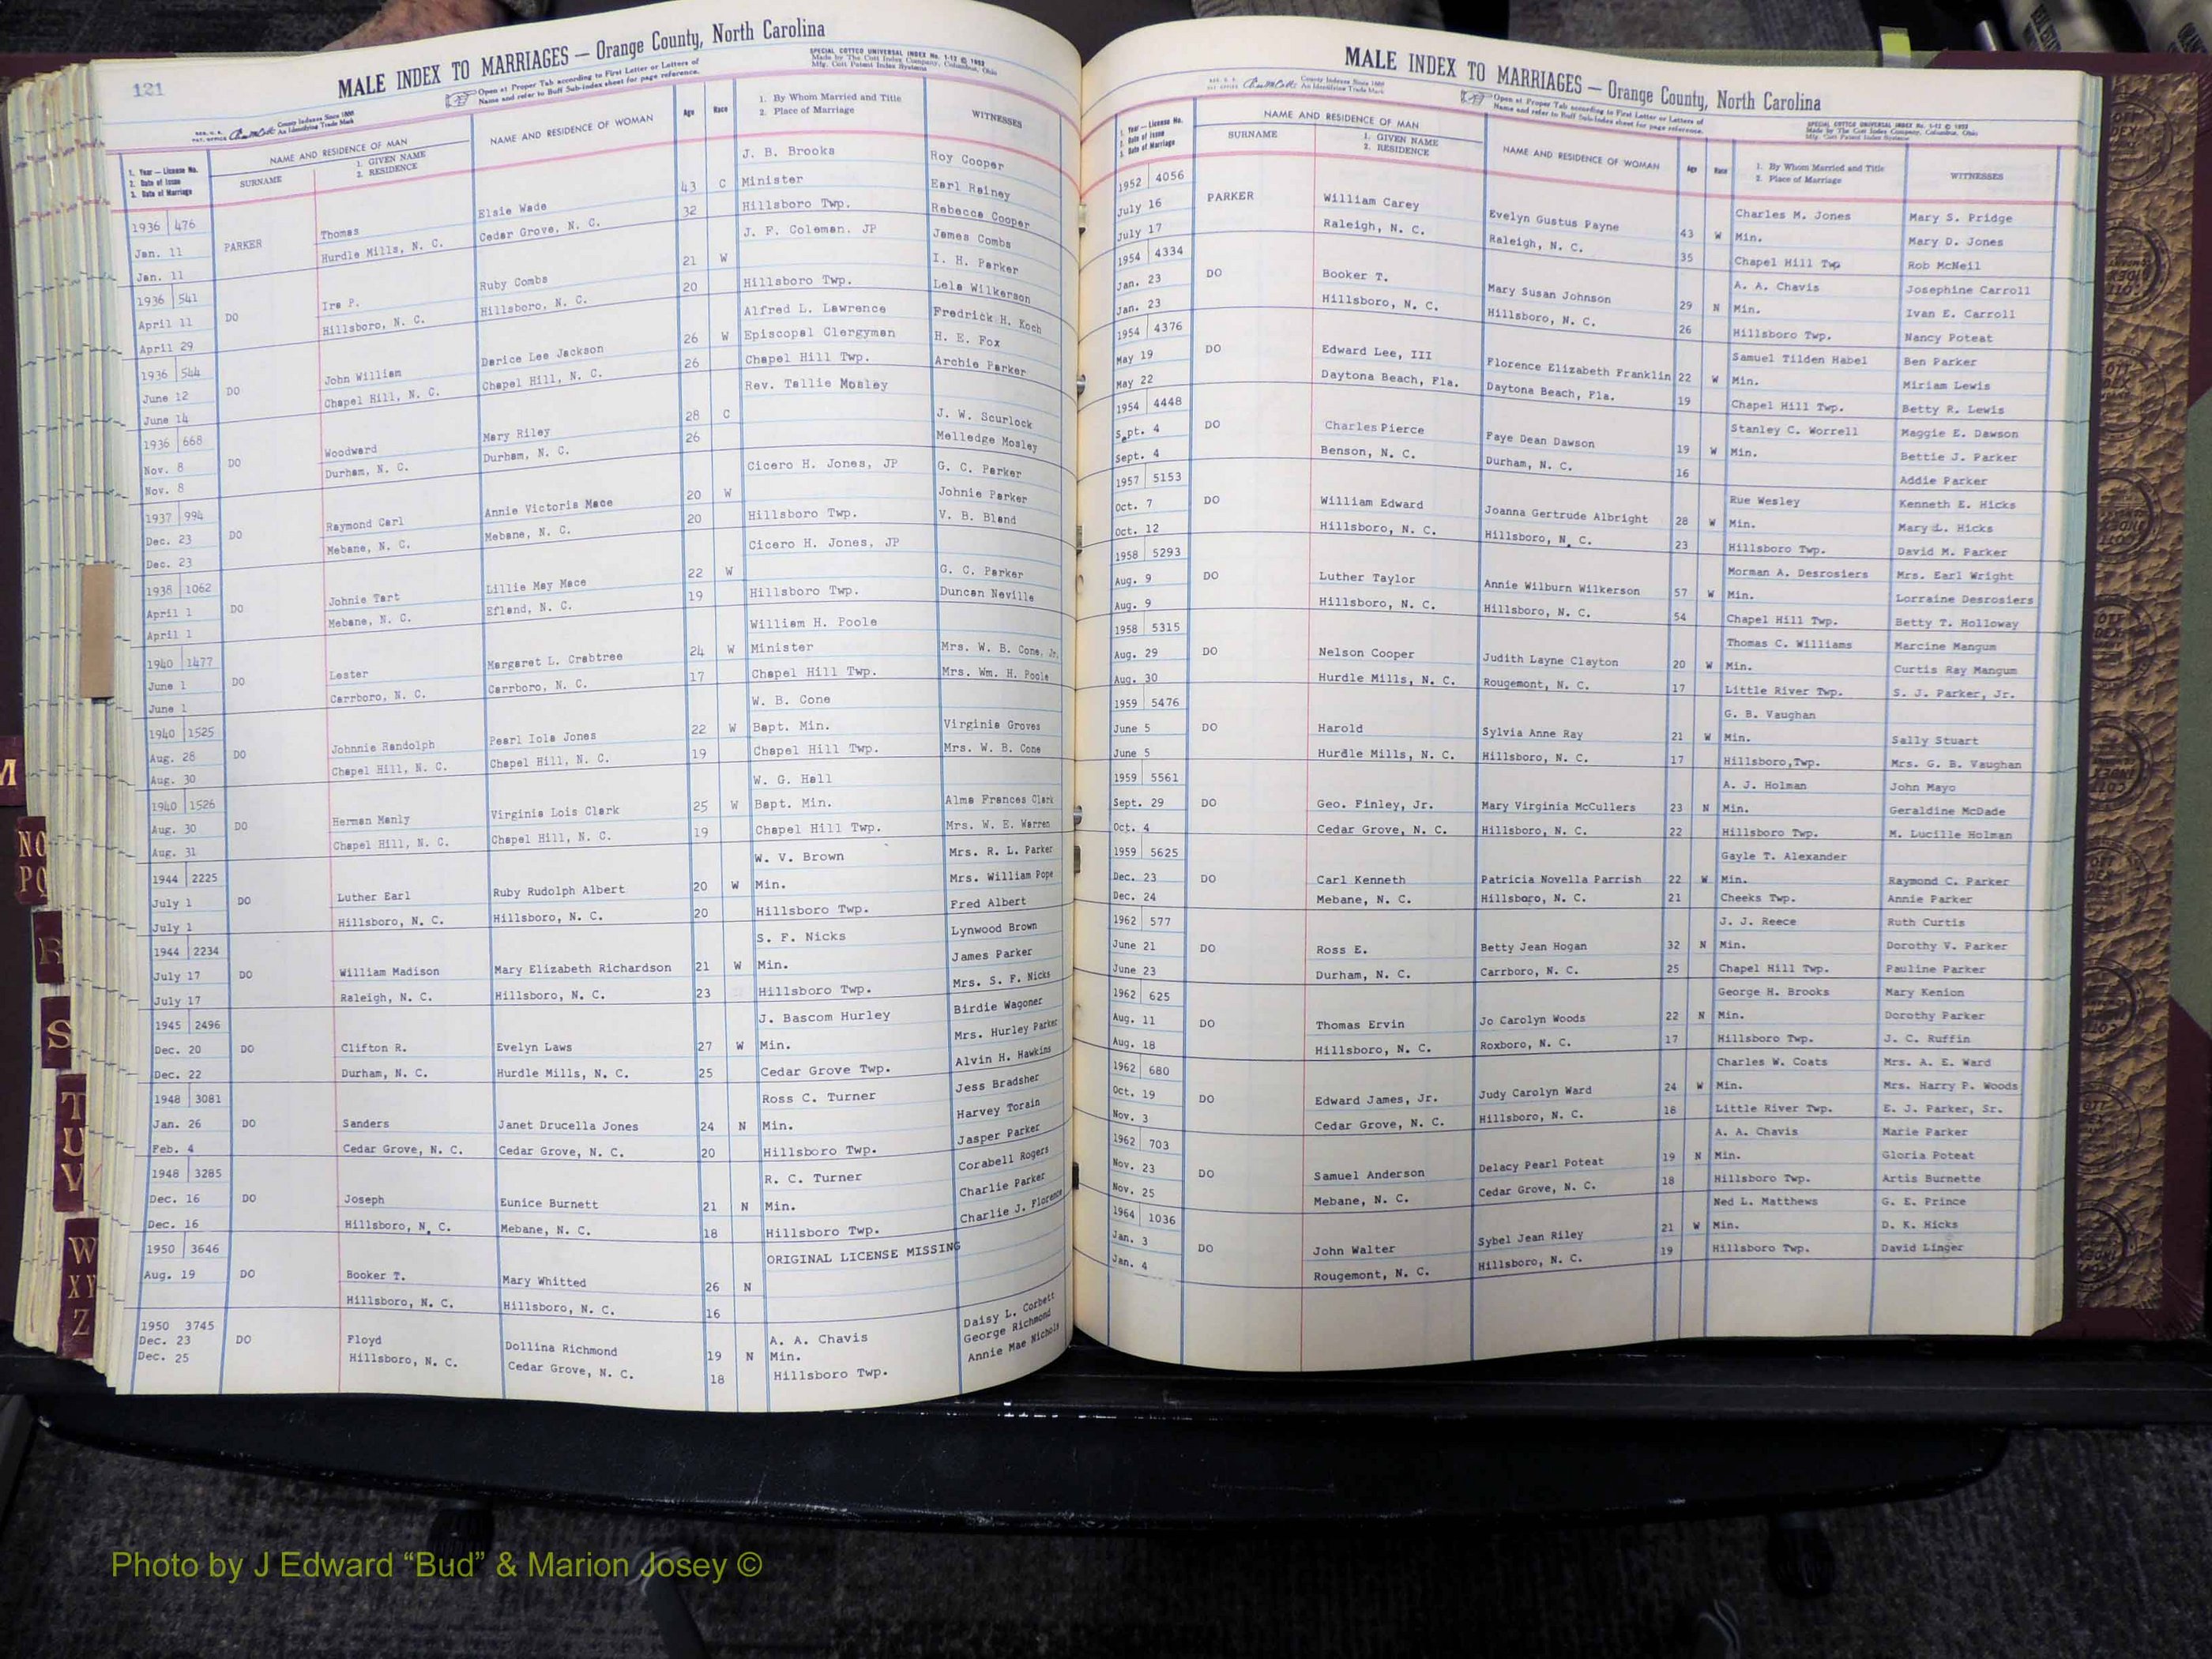 121
MALE INDEX TO MARRIAGES — Orange County, North Carolina
Open at Proper Tab according to First Letter or Letters of
Name and refer to Buff Sub-Index sheet for page reference.
SPECIAL COTTCO UNIVERSAL INDEX No. 1-12 © 1952
Made by The Cott Index Company, Columbus, Ohio
Mfg. Cott Patent Index Systems
County Indexes Since 1888
An Identifying Trade Mark
1. Year — License No.
2. Date of Issue
3. Date of Marriage
NAME AND RESIDENCE OF MAN
SURNAME
1. GIVEN NAME
2. RESIDENCE
NAME AND RESIDENCE OF WOMAN
Age
Race
1. By Whom Married and Title
2. Place of Marriage
WITNESSES
J. B. Brooks Roy Cooper
1936 476 Elsie Wade 43 C Minister Earl Rainey
Jan. 11 PARKER Thomas Cedar Grove, N. C. 32 Hillsboro Twp. Rebecca Cooper
Jan. 11 Hurdle Mills, N. C.
J. F. Coleman, JP James Combs
1936 541 Ruby Combs 21 W I. H. Parker
April 11 DO Ira P. Hillsboro, N. C. 20 Hillsboro Twp. Lela Wilkerson
April 29 Hillsboro, N. C.
Alfred L. Lawrence Fredrick H. Koch
1936 544 Darice Lee Jackson 26 W Episcopal Clergyman H. E. Fox
June 12 DO John William Chapel Hill, N. C. 26 Chapel Hill Twp. Archie Parker
June 14 Chapel Hill, N. C.
Rev. Tallie Mosley
1936 668 Mary Riley 28 C J. W. Scurlock
Nov. 8 DO Woodward Durham, N. C. 26 Melledge Mosley
Nov. 8 Durham, N. C.
Cicero H. Jones, JP G. C. Parker
1937 994 Annie Victoria Mace 20 W Johnie Parker
Dec. 23 DO Raymond Carl Mebane, N. C. 20 Hillsboro Twp. V. B. Bland
Dec. 23 Mebane, N. C.
Cicero H. Jones, JP
1938 1062 Lillie May Mace 22 W G. C. Parker
April 1 DO Johnie Tart Efland, N. C. 19 Hillsboro Twp. Duncan Neville
April 1 Mebane, N. C.
William H. Poole
1940 1477 Margaret L. Crabtree 24 W Minister Mrs. W. B. Cone, Jr.
June 1 DO Lester Carrboro, N. C. 17 Chapel Hill Twp. Mrs. Wm. H. Poole
June 1 Carrboro, N. C.
W. B. Cone
1940 1525 Pearl Iola Jones 22 W Bapt. Min. Virginia Groves
Aug. 28 DO Johnnie Randolph Chapel Hill, N. C. 19 Chapel Hill Twp. Mrs. W. B. Cone
Aug. 30 Chapel Hill, N. C.
W. G. Hall
1940 1526 Virginia Lois Clark 25 W Bapt. Min. Alma Frances Clark
Aug. 30 DO Herman Manly Chapel Hill, N. C. 19 Chapel Hill Twp. Mrs. W. E. Warren
Aug. 31 Chapel Hill, N. C.
W. V. Brown Mrs. R. L. Parker
1944 2225 Ruby Rudolph Albert 20 W Min. Mrs. William Pope
July 1 DO Luther Earl Hillsboro, N. C. 20 Hillsboro Twp. Fred Albert
July 1 Hillsboro, N. C.
S. F. Nicks Lynwood Brown
1944 2234 Mary Elizabeth Richardson 21 W Min. James Parker
July 17 DO William Madison Hillsboro, N. C. 23 Hillsboro Twp. Mrs. S. F. Nicks
July 17 Raleigh, N. C.
J. Bascom Hurley Birdie Wagoner
1945 2496 Evelyn Laws 27 W Min. Mrs. Hurley Parker
Dec. 20 DO Clifton R. Hurdle Mills, N. C. 25 Cedar Grove Twp. Alvin H. Hawkins
Dec. 22 Durham, N. C.
Ross C. Turner Jess Bradsher
1948 3081 Janet Drucella Jones 24 N Min. Harvey Torain
Jan. 26 DO Sanders Cedar Grove, N. C. 20 Hillsboro Twp. Jasper Parker
Feb. 4 Cedar Grove, N. C.
R. C. Turner Corabell Rogers
1948 3285 Eunice Burnett 21 N Min. Charlie Parker
Dec. 16 DO Joseph Mebane, N. C. 18 Hillsboro Twp. Charlie J. Florence
Dec. 16 Hillsboro, N. C.
1950 3646 ORIGINAL LICENSE MISSING
Aug. 19 DO Booker T. Mary Whitted 26 N
Hillsboro, N. C. Hillsboro, N. C. 16
1950 3745 Daisy L. Corbett
Dec. 23 DO Floyd Dollina Richmond 19 N A. A. Chavis George Richmond
Dec. 25 Hillsboro, N. C. Cedar Grove, N. C. 18 Min. Annie Mae Nichols
Hillsboro Twp.
MALE INDEX TO MARRIAGES — Orange County, North Carolina
County Indexes Since 1888
An Identifying Trade Mark
Open at Proper Tab according to First Letter or Letters of
Name and refer to Buff Sub-Index sheet for page reference.
SPECIAL COTTCO UNIVERSAL INDEX No. 1-12 © 1952
Made by The Cott Index Company, Columbus, Ohio
Mfg. Cott Patent Index Systems
1. Year — License No.
2. Date of Issue
3. Date of Marriage
NAME AND RESIDENCE OF MAN
SURNAME
1. GIVEN NAME
2. RESIDENCE
NAME AND RESIDENCE OF WOMAN
Age
Race
1. By Whom Married and Title
2. Place of Marriage
WITNESSES
1952 4056 Charles M. Jones Mary S. Pridge
July 16 PARKER William Carey Evelyn Gustus Payne 43 W Min. Mary D. Jones
July 17 Raleigh, N. C. Raleigh, N. C. 35 Chapel Hill Twp Rob McNeil
1954 4334 A. A. Chavis Josephine Carroll
Jan. 23 DO Booker T. Mary Susan Johnson 29 N Min. Ivan E. Carroll
Jan. 23 Hillsboro, N. C. Hillsboro, N. C. 26 Hillsboro Twp. Nancy Poteat
1954 4376 Samuel Tilden Habel Ben Parker
May 19 DO Edward Lee, III Florence Elizabeth Franklin 22 W Min. Miriam Lewis
May 22 Daytona Beach, Fla. Daytona Beach, Fla. 19 Chapel Hill Twp. Betty R. Lewis
1954 4448 Stanley C. Worrell Maggie E. Dawson
Sept. 4 DO Charles Pierce Faye Dean Dawson 19 W Min. Bettie J. Parker
Sept. 4 Benson, N. C. Durham, N. C. 16 Addie Parker
1957 5153 Rue Wesley Kenneth E. Hicks
Oct. 7 DO William Edward Joanna Gertrude Albright 28 W Min. Mary L. Hicks
Oct. 12 Hillsboro, N. C. Hillsboro, N. C. 23 Hillsboro Twp. David M. Parker
1958 5293 Morman A. Desrosiers Mrs. Earl Wright
Aug. 9 DO Luther Taylor Annie Wilburn Wilkerson 57 W Min. Lorraine Desrosiers
Aug. 9 Hillsboro, N. C. Hillsboro, N. C. 54 Chapel Hill Twp. Betty T. Holloway
1958 5315 Thomas C. Williams Marcine Mangum
Aug. 29 DO Nelson Cooper Judith Layne Clayton 20 W Min. Curtis Ray Mangum
Aug. 30 Hurdle Mills, N. C. Rougemont, N. C. 17 Little River Twp. S. J. Parker, Jr.
1959 5476 G. B. Vaughan
June 5 DO Harold Sylvia Anne Ray 21 W Min. Sally Stuart
June 5 Hurdle Mills, N. C. Hillsboro, N. C. 17 Hillsboro,Twp. Mrs. G. B. Vaughan
1959 5561 A. J. Holman John Mayo
Sept. 29 DO Geo. Finley, Jr. Mary Virginia McCullers 23 N Min. Geraldine McDade
Oct. 4 Cedar Grove, N. C. Hillsboro, N. C. 22 Hillsboro Twp. M. Lucille Holman
1959 5625 Gayle T. Alexander
Dec. 23 DO Carl Kenneth Patricia Novella Parrish 22 W Min. Raymond C. Parker
Dec. 24 Mebane, N. C. Hillsboro, N. C. 21 Cheeks Twp. Annie Parker
1962 577 J. J. Reece Ruth Curtis
June 21 DO Ross E. Betty Jean Hogan 32 N Min. Dorothy V. Parker
June 23 Durham, N. C. Carrboro, N. C. 25 Chapel Hill Twp. Pauline Parker
1962 625 George H. Brooks Mary Kenion
Aug. 11 DO Thomas Ervin Jo Carolyn Woods 22 N Min. Dorothy Parker
Aug. 18 Hillsboro, N. C. Roxboro, N. C. 17 Hillsboro Twp. J. C. Ruffin
1962 680 Charles W. Coats Mrs. A. E. Ward
Oct. 19 DO Edward James, Jr. Judy Carolyn Ward 24 W Min. Mrs. Harry P. Woods
Nov. 3 Cedar Grove, N. C. Hillsboro, N. C. 18 Little River Twp. E. J. Parker, Sr.
1962 703 A. A. Chavis Marie Parker
Nov. 23 DO Samuel Anderson Delacy Pearl Poteat 19 N Min. Gloria Poteat
Nov. 25 Mebane, N. C. Cedar Grove, N. C. 18 Hillsboro Twp. Artis Burnette
1964 1036 Ned L. Matthews G. E. Prince
Jan. 3 DO John Walter Sybel Jean Riley 21 W Min. D. K. Hicks
Jan. 4 Rougemont, N. C. Hillsboro, N. C. 19 Hillsboro Twp. David Linger
M
NO
PQ
R
S
T
U
V
W
XY
Z
Photo by J Edward “Bud” & Marion Josey ©